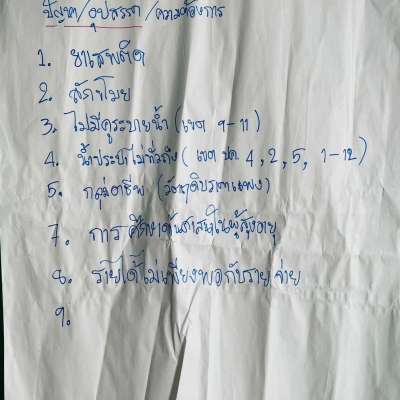 ปัญหา/อุปสรรค/ความต้องการ
1. ยาเสพติด
2. ลักขโมย
3. ไม่มีคูระบายน้ำ (เขต 9-11)
4. น้ำประปาไม่ทั่วถึง ( เขต 4, 2, 5, 1-12)
5. กลุ่มอาชีพ (วัตถุดิบราคาแพง)
7. การศึกษาด้านศาสนาในผู้สูงอายุ
8. รายได้ไม่เพียงพอกับรายจ่าย
9.